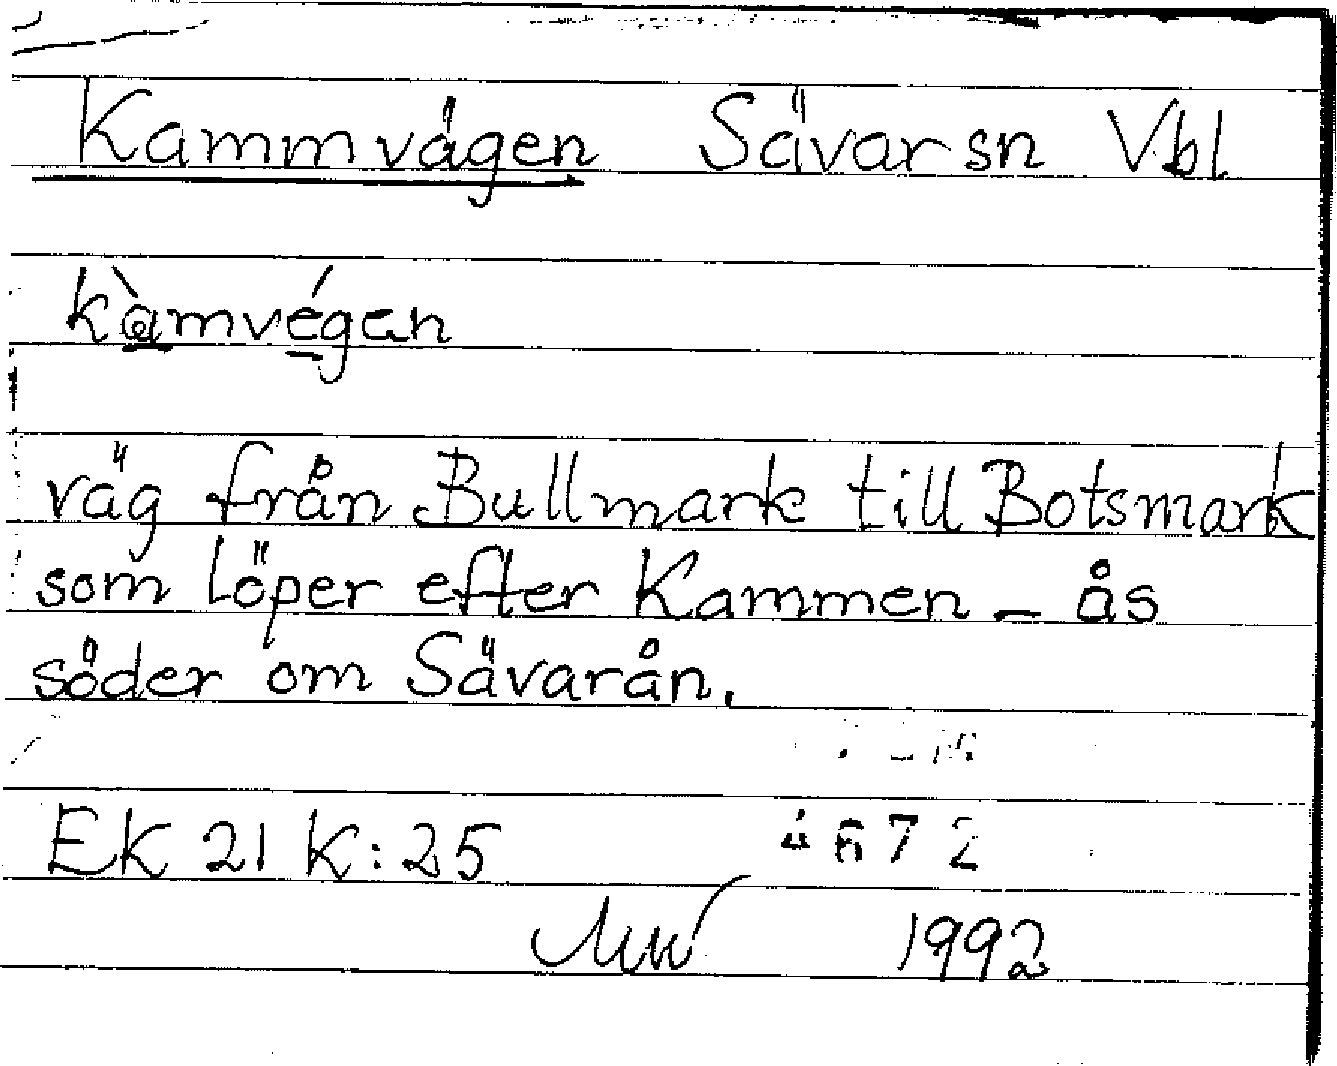 Kammvägen Sävar sn Vbl
kàmvégan
väg från Bullmark till Botsmark
som löper efter Kammen – ås
söder om Sävarån.
EK 21 K:25 672
1992